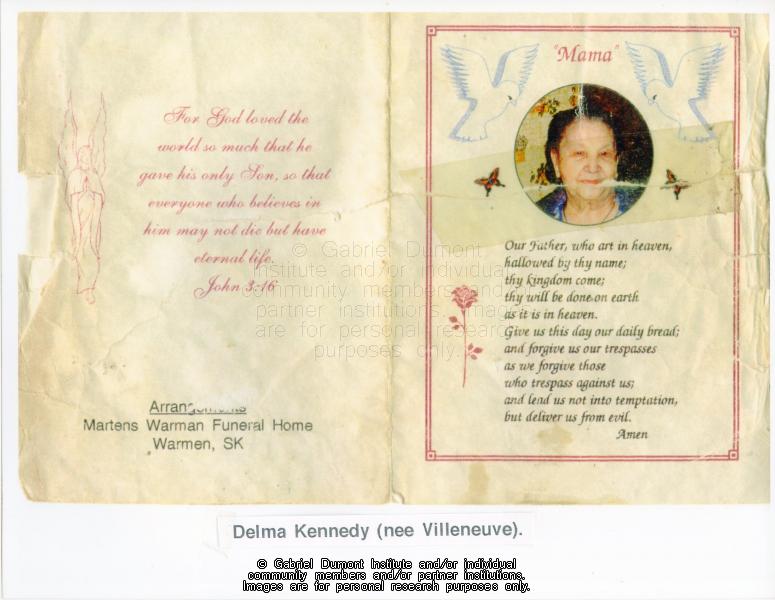 For God loved the
world so much that he
gave his only Son, so that
everyone who believes in
him may not die but have
eternal life.
John 3:16
Arrangements
Martens Warman Funeral Home
Warmen, SK
"Mama"
Our Father, who art in heaven,
hallowed by thy name;
thy kingdom come;
thy will be done on earth
as it is in heaven.
Give us this day our daily bread;
and forgive us our trespasses
as we forgive those
who trespass against us;
and lead us not into temptation,
but deliver us from evil.
Amen
© Gabriel Dumont
Institute and/or individual
community members and/or
partner institutions. Images
are for personal research
purposes only.
Delma Kennedy (nee Villeneuve).
© Gabriel Dumont Institute and/or individual
community members and/or partner institutions.
Images are for personal research purposes only.